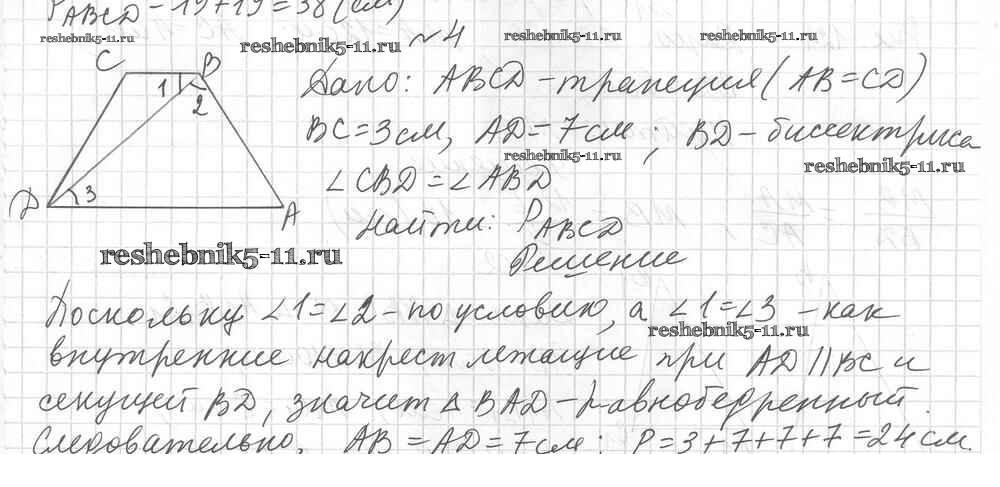 P ABCD = 19+19=38 (см)
reshebnik5-11.ru reshebnik5-11.ru №4 reshebnik5-11.ru reshebnik5-11.ru
C B 1 2 D 3 A
Дано: ABCD – трапеция (AB=CD)
BC=3см, AD=7см; BD – биссектриса
reshebnik5-11.ru reshebnik5-11.ru
∠CBD=∠ABD
Найти: P ABCD
reshebnik5-11.ru Решение
Поскольку ∠1=∠2 – по условию, а ∠1=∠3 – как
reshebnik5-11.ru
внутренние накрест лежащие при AD||BC и
секущей BD, значит Δ BAD – равнобедренный.
Следовательно, AB=AD=7см; P=3+7+7+7=24см.